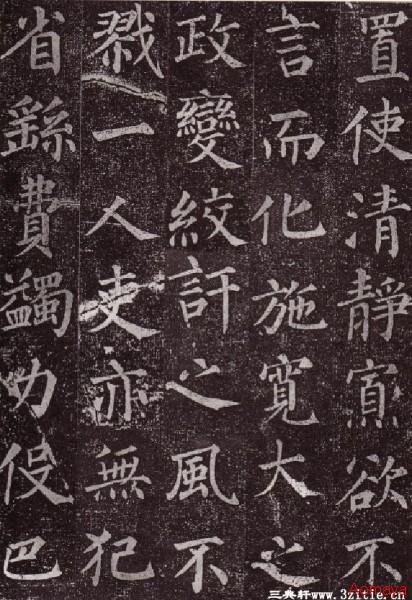 置使清靜寡欲不
言而化施寬大之
政變絞訐之風不
戮一人吏亦無犯
省繇費蠲力伇巴
三典轩www.3zitie.cn